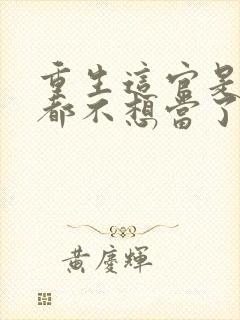 重生這官是
都不想當了
黃慶輝